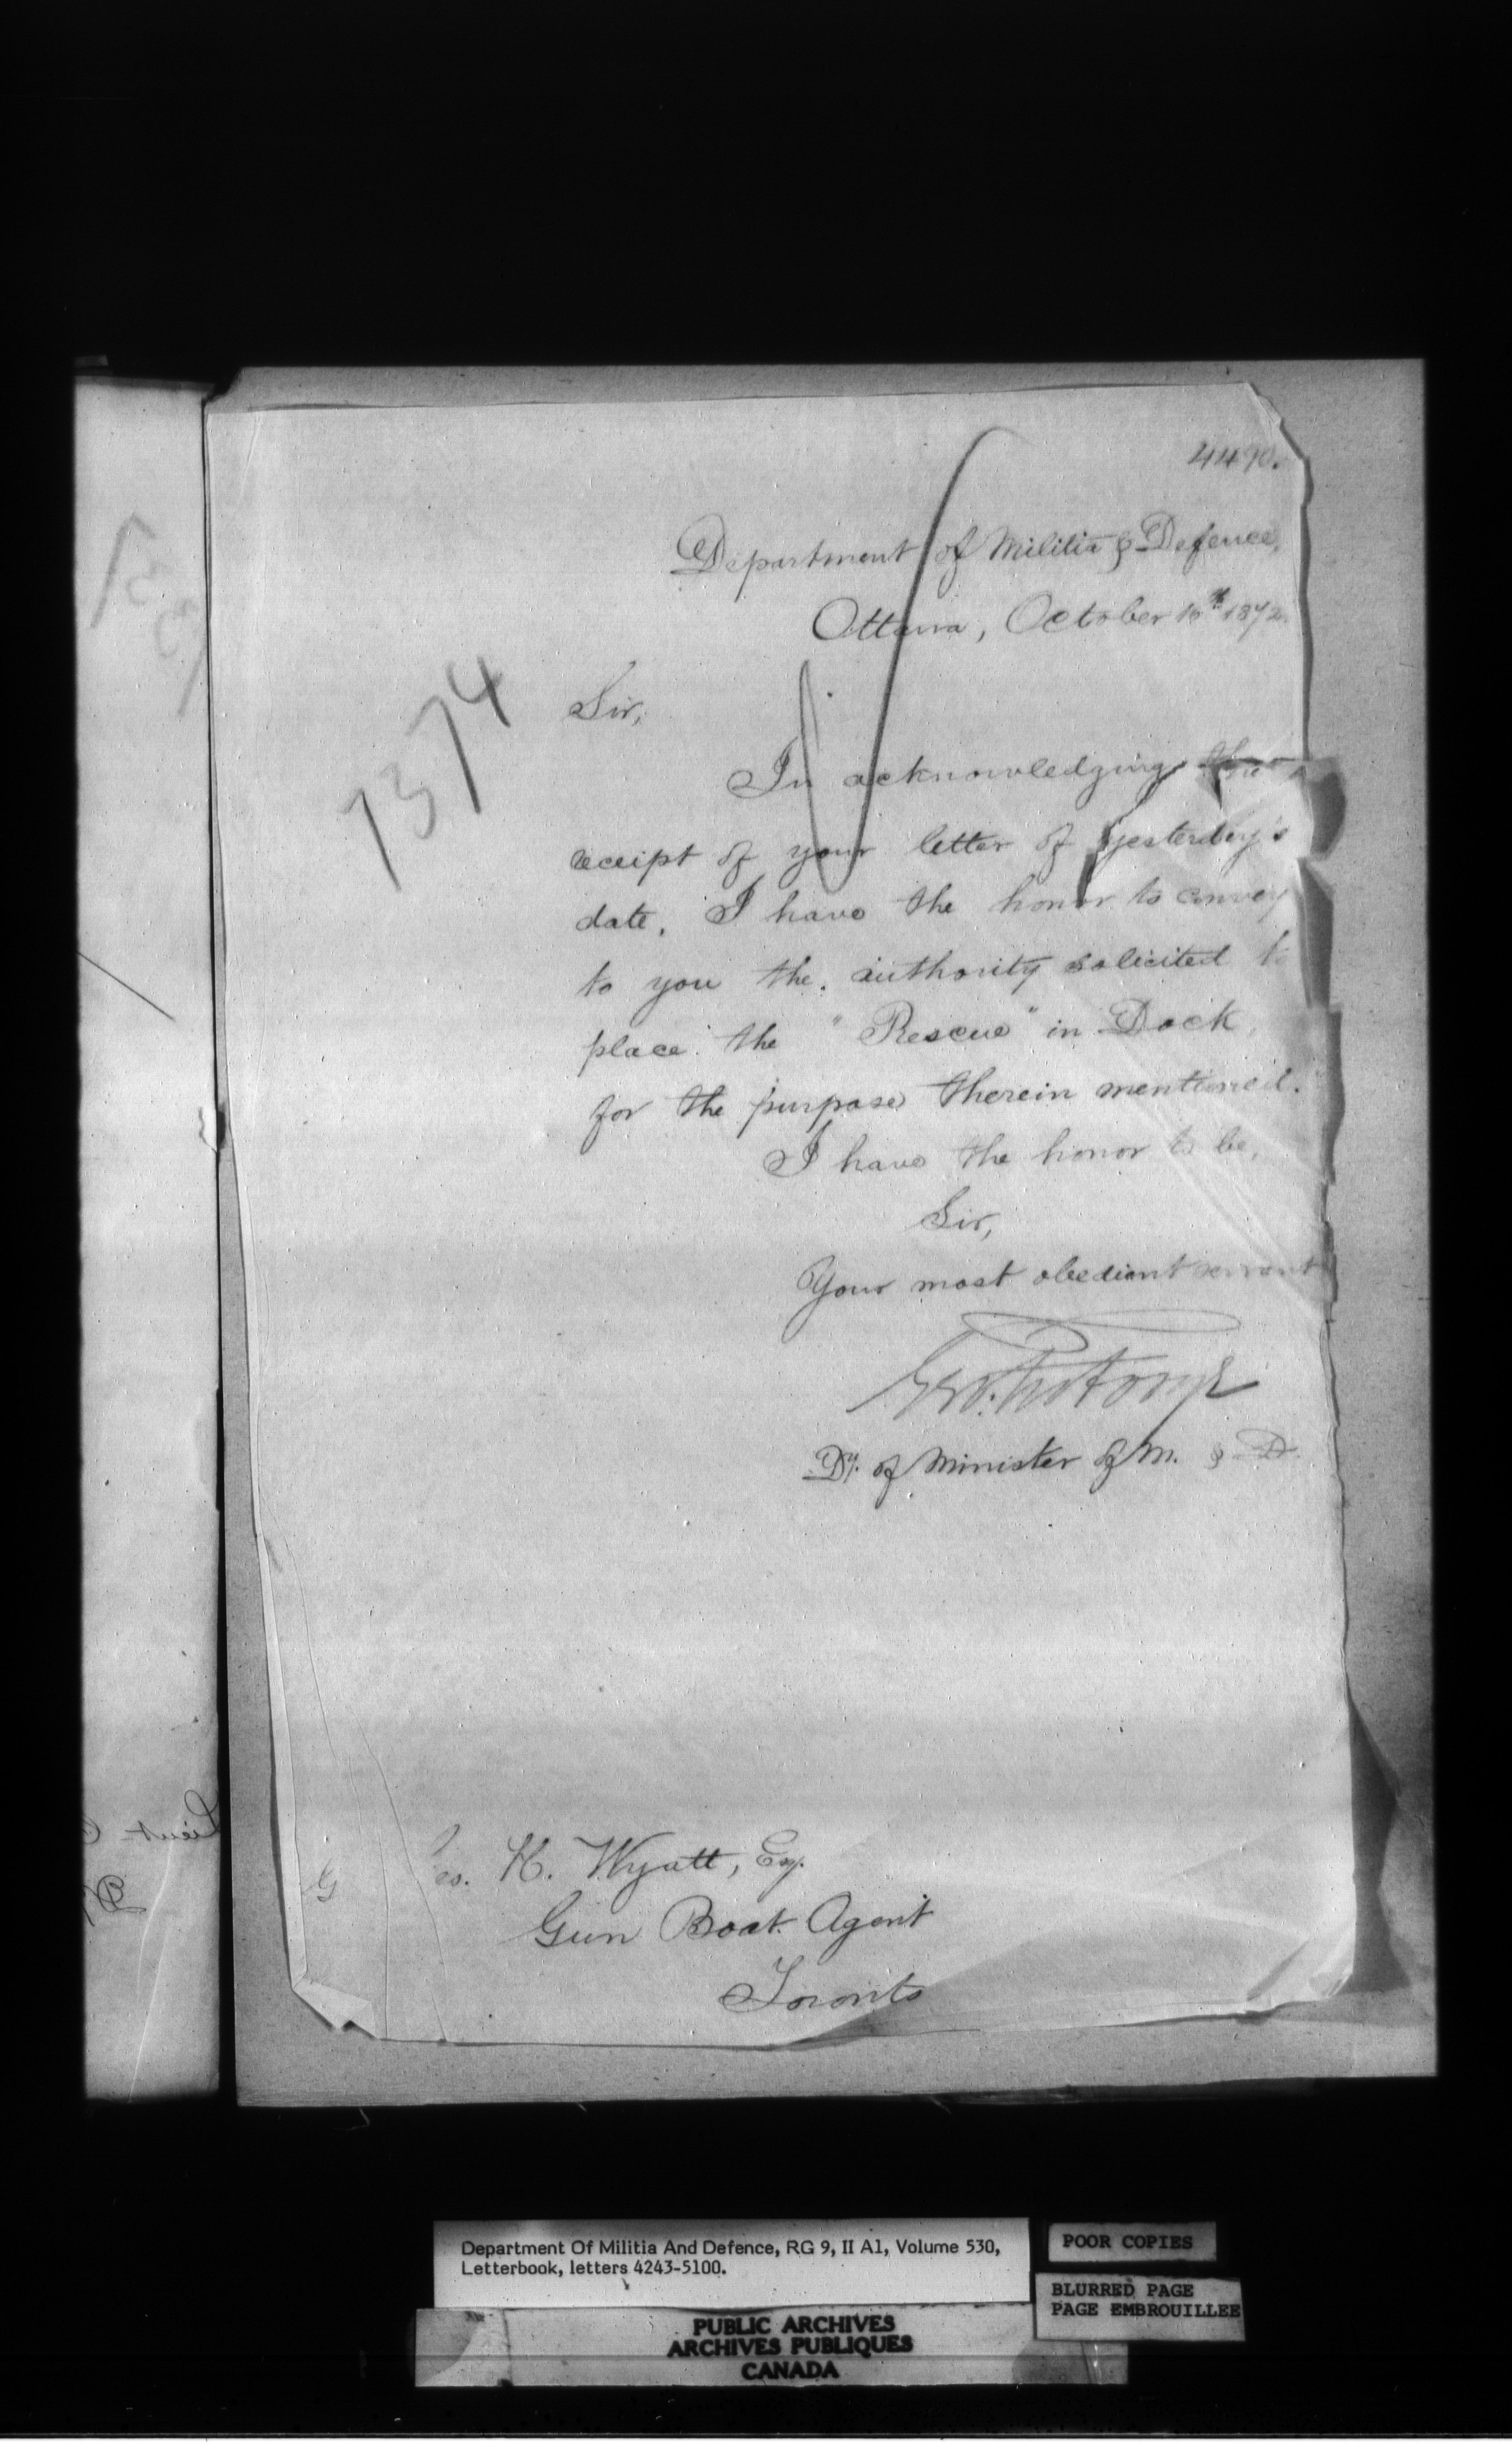 4470.
Department of Militia & Defence,
Ottawa, October 10th 1872.
1374
Sir,
In acknowledging the
receipt of your letter of yesterday's
date, I have the honor to convey
to you the authority solicited to
place the "Rescue" in Dock,
for the purpose therein mentioned.
I have the honor to be,
Sir,
Your most obedient servant
Dy. of Minister of M. & D.
H. Wyatt, Esq.
Gun Boat Agent
Toronto
Department Of Militia And Defence, RG 9, II A1, Volume 530,
Letterbook, letters 4243-5100.
POOR COPIES
BLURRED PAGE
PAGE EMBROUILLEE
PUBLIC ARCHIVES
ARCHIVES PUBLIQUES
CANADA